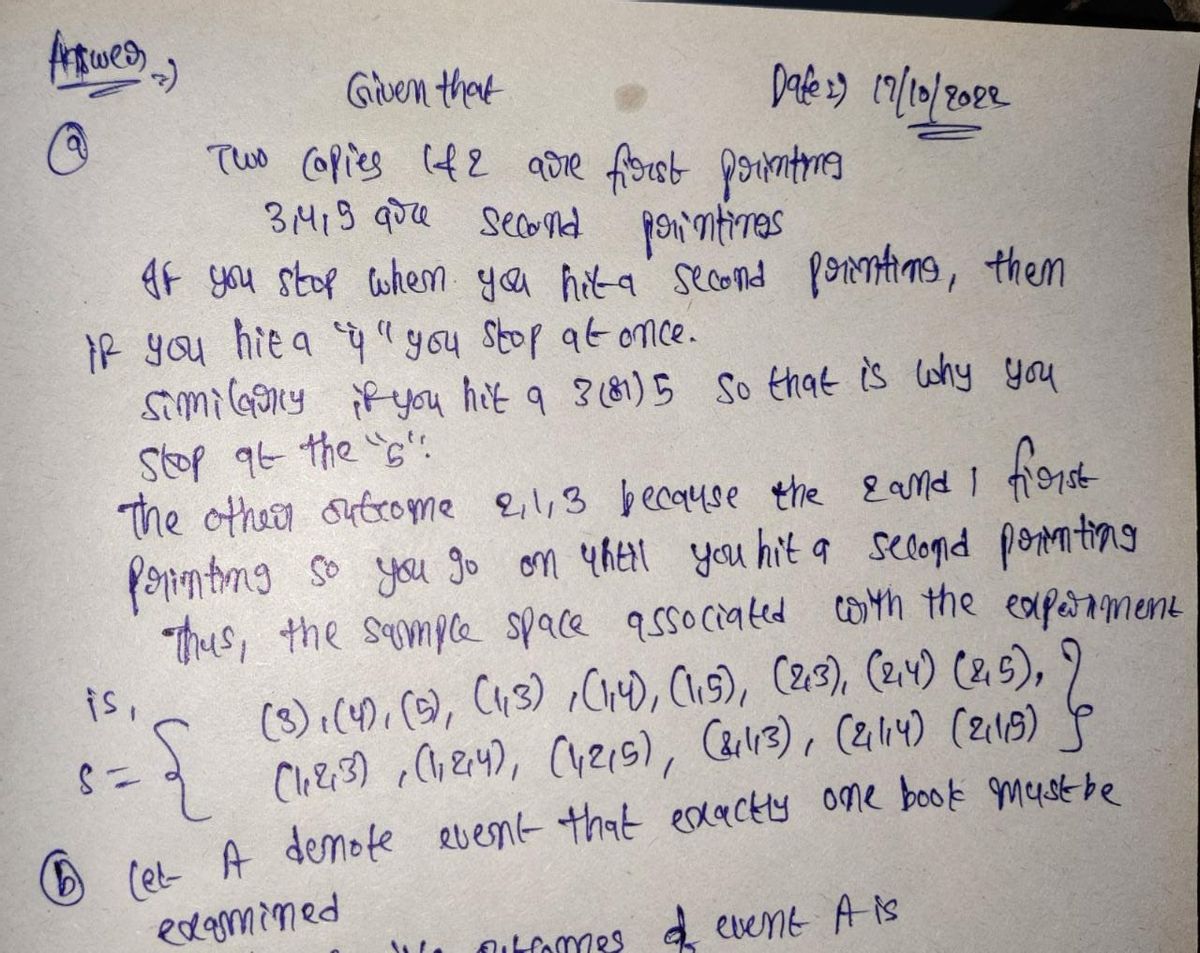 Answer =)
Given that
Date :) 17/10/2022
(a) Two copies 1 & 2 are first printing
3,4,5 are second printings
If you stop when you hit a second printing, then
if you hit a "4" you stop at once.
similarly if you hit a 3 (or) 5 so that is why you
stop at the "5".
The other outcome 2,1,3 because the 2 and 1 first
printing so you go on until you hit a second printing
Thus, the sample space associated with the experiment
is,
S = { (3), (4), (5), (1,3), (1,4), (1,5), (2,3), (2,4) (2,5),
(1,2,3), (1,2,4), (1,2,5), (2,1,3), (2,1,4) (2,1,5) }
(b) Let A denote event that exactly one book must be
examined
outcomes of event A is